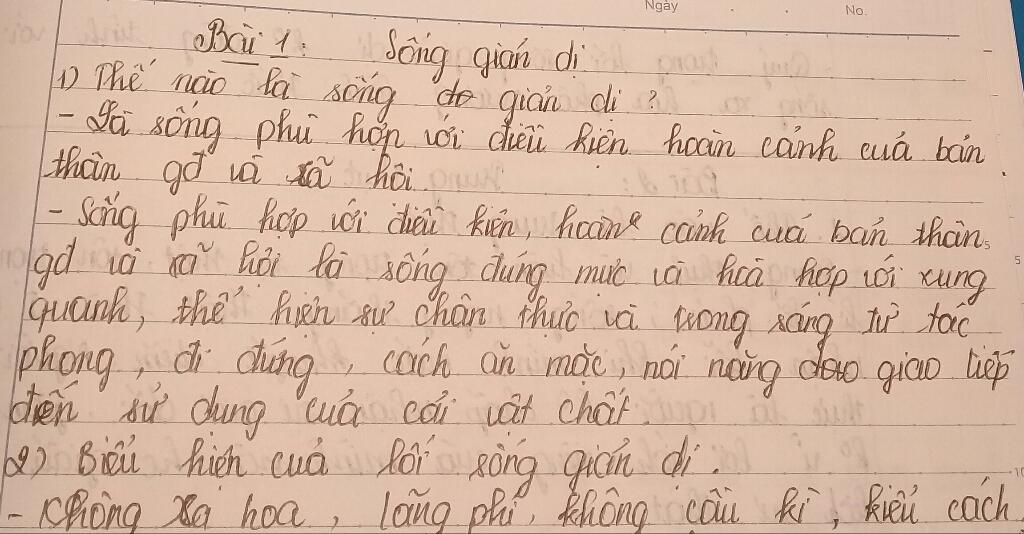 Ngày No.
Bài 1: Sống giản dị
1) Thế nào là sống giản dị?
- Là sống phù hợp với điều kiện hoàn cảnh của bản
thân gđ và xã hội.
- Sống phù hợp với điều kiện, hoàn cảnh của bản thân,
gđ và xã hội là sống đúng mực và hoà hợp với xung
quanh, thể hiện sự chân thực và trong sáng từ tác
phong, đi đứng, cách ăn mặc, nói năng giao tiếp
đến sử dụng của cải vật chất.
2) Biểu hiện của lối sống giản dị.
- Không xa hoa, lãng phí, không cầu kì, kiểu cách
5
10